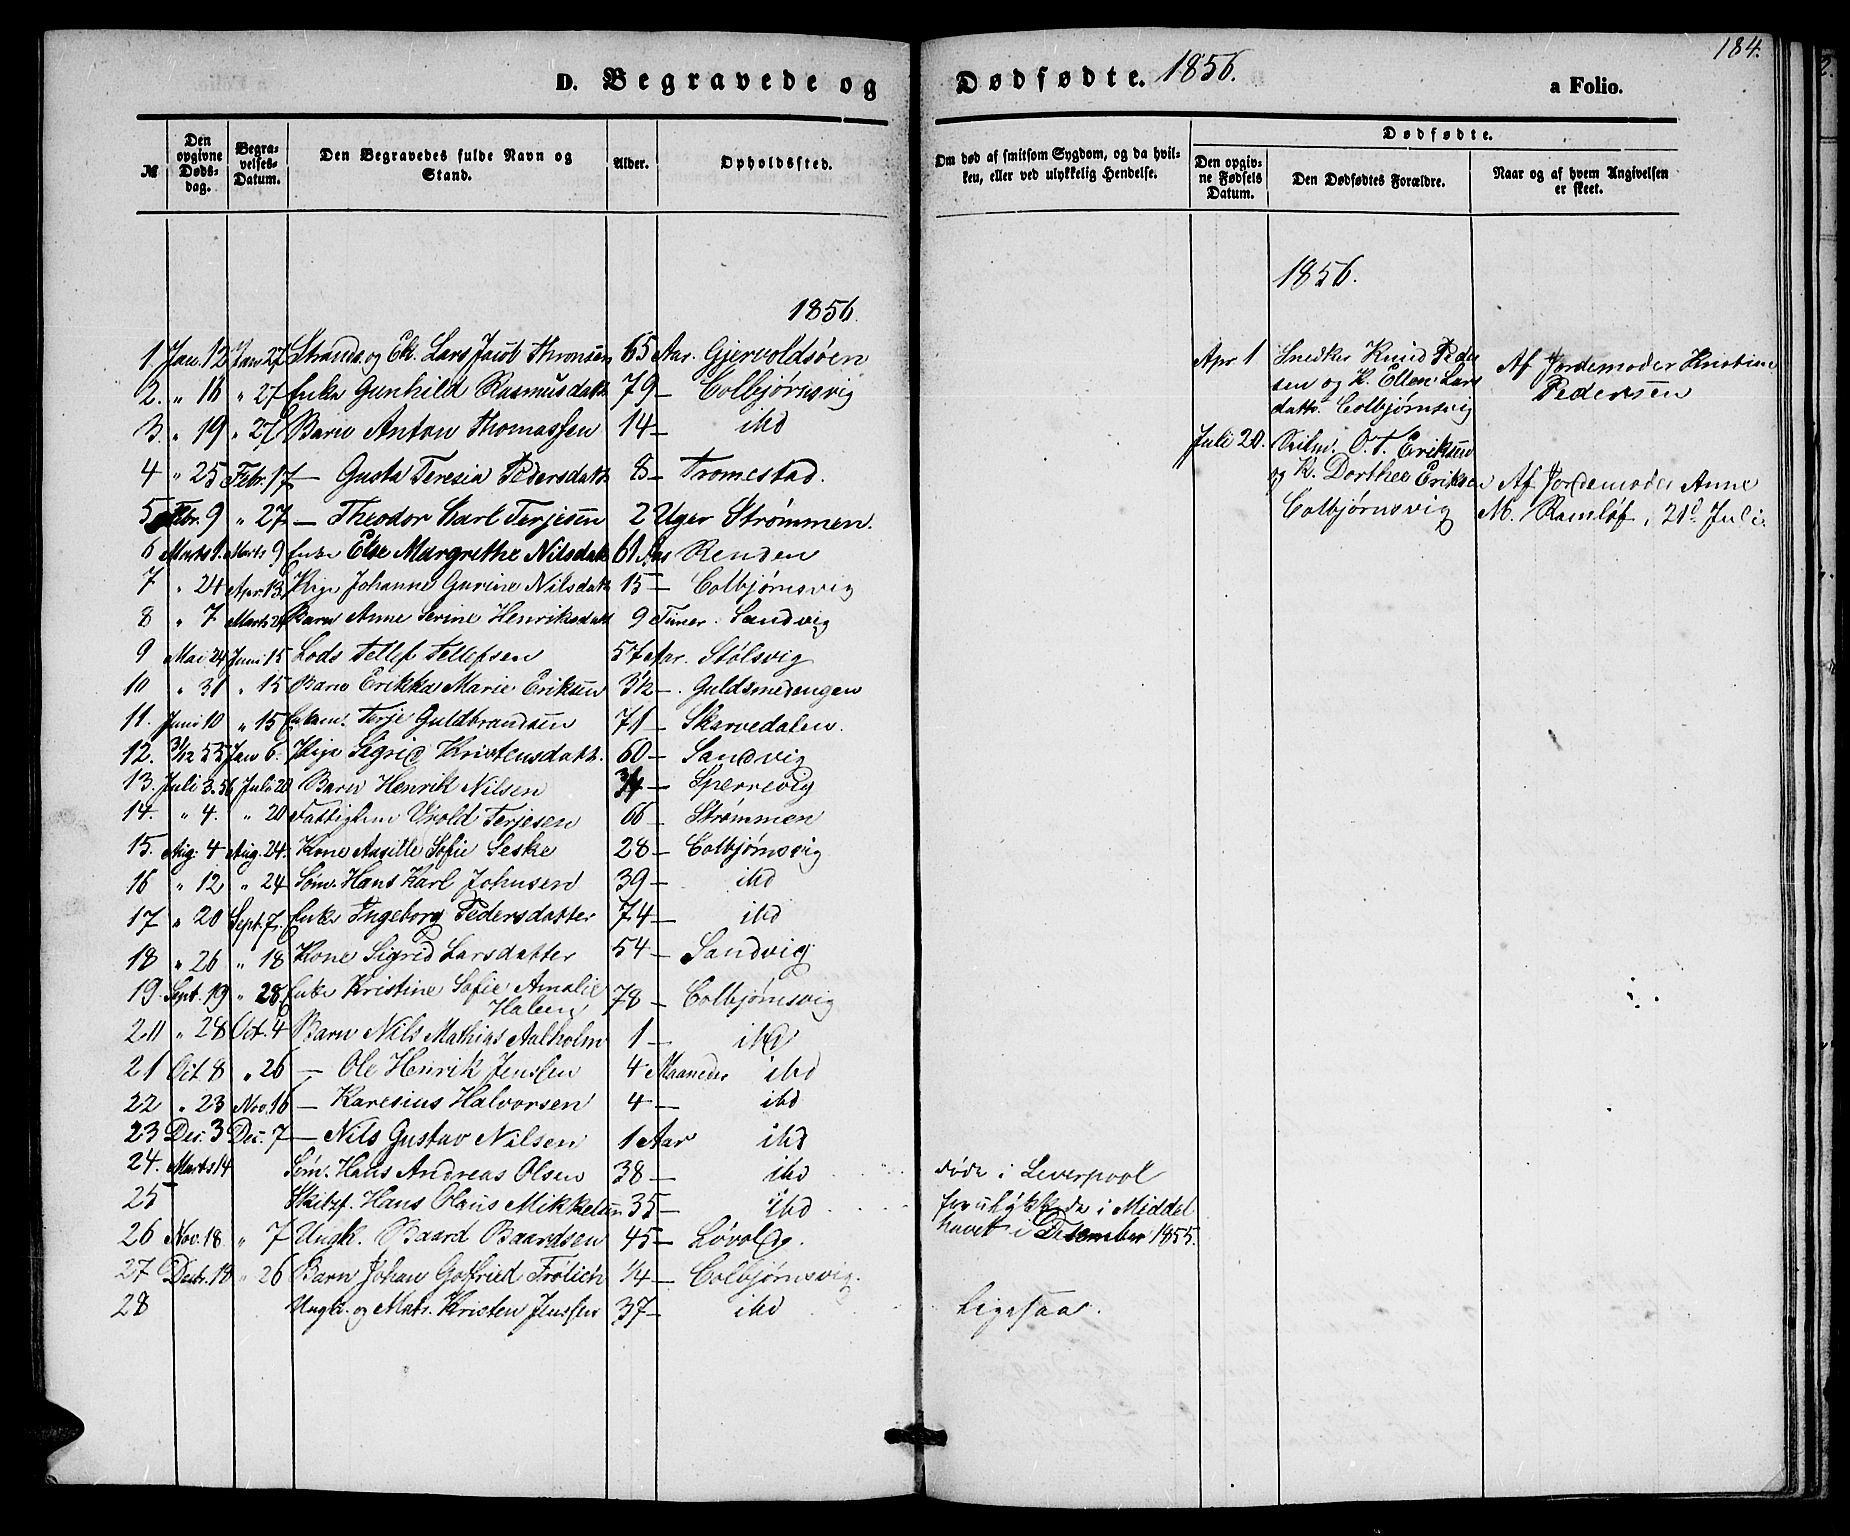 184.
D. Begravede og Dødfødte. 1856. a Folio.
№ Den opgivne Døds-dag. Begra-velses-Datum. Den Begravedes fulde Navn og Stand. Alder. Opholdssted.
Om død af smitsom Sygdom, og da hvil-ken, eller ved ulykkelig Hendelse.
Dødfødte.
Den opgiv-ne Fødsels Datum. Den Dødfødtes Forældre. Naar og af hvem Angivelsen er skeet.
1856.
1. Jan. 12 Jan 27 Strands. og Ek. Lars Jacob Thronsen 65 Aar. Gjervoldsøen
2. " 16 " 27 Enke Gunhild Rasmusdatt. 79 — Colbjørnsvig
3. " 19 " 27 Barn Anton Thomassen 14 — ibd
4 " 25 Febr. 17 — Gusta Teresia Pedersdatt. 8 — Tromestad.
5 Febr. 9 " 27 — Theodor Karl Terjesen 2 Uger Strømmen.
6 Marts 1. Marts 9 Enke Else Margrethe Nilsdatt. 61 Aar Renden
7 " 24 Apr. 13 Pige Johanne Gurine Nilsdatt. 15 — Colbjørnsvig
8 " 7 Marts 24 Barn Anne Serine Henriksdatt 9 Timer. Sandvig
9 Mai 24 Juni 15 Lods Tellef Tellefsen 57 Aar. Stølsvig
10 " 31 " 15 Barn Erikka Marie Eriksen 3½ — Guldsmedengen
11. Juni 10 " 15 Enkem. Terje Guldbrandsen 71 — Skarvedalen.
12. 31/12 55 Jan 6. Pige Sigrid Kristensdatt. 60 — Sandvig
13. Juli 3. 56 Juli 20 Barn Henrik Nilsen 3/4 — Sperrevig
14. " 4. " 20 Fattiglem Vrold Terjesen 66 — Strømmen
15. Aug. 4 Aug. 24. Kone Ansille Sofie Seske 28 — Colbjørnsvig
16 " 12 " 24 Søm. Hans Karl Johnsen 39 — ibd
17 " 20 Sept. 7. Enke Ingeborg Pedersdatter 74 — ibd
18 " 26 " 18 Kone Sigrid Larsdatter 54 — Sandvig
19. Sept. 19 " 28 Enke Kristine Sofie Amalie
Halen 78 — Colbjørnsvig
20 " 28 Oct. 4 Barn Nils Mathias Aalholm 1 — ibd
21 Oct 8 " 26 — Ole Henrik Jenssen 4 Maaneder ibd
22 " 23 Nov. 16 — Karesius Halvorsen 4 — ibd
23 Dec. 3 Dec. 7 — Nils Gustav Nilsen 1 Aar ibd
24. Marts 14 Søm. Hans Andreas Olsen 38 — ibd døde i Leverpool
25 — Skibsf. Hans Olaus Mikkelsen 35 — ibd forulykkede i Middel
26 Nov. 18 " 7 Ungk. Baard Baardsen 45 — Løvold. havet i Desember 1855.
27 Decbr. 18 " 26 Barn Johan Gotfried Frölich ¼ — Colbjørnsvig.
28 Ungk. og Matr. Kristen Jenssen 37 — ibd Ligesaa.
1856.
Apr. 1 Snedker Knud Peder
sen og K. Ellen Lars
datt. Colbjørnsvig
Af Jordemoder Kristine
Pedersen
Juli 20. O. T. Eriksen
og K. Dorthea Eriksen
Colbjørnsvig
Af Jordemoder Anne
M. Ramløf, 21d Juli